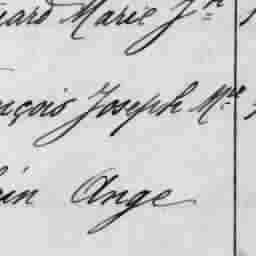 uard Marie Jn
nçois Joseph Mie
ein Ange